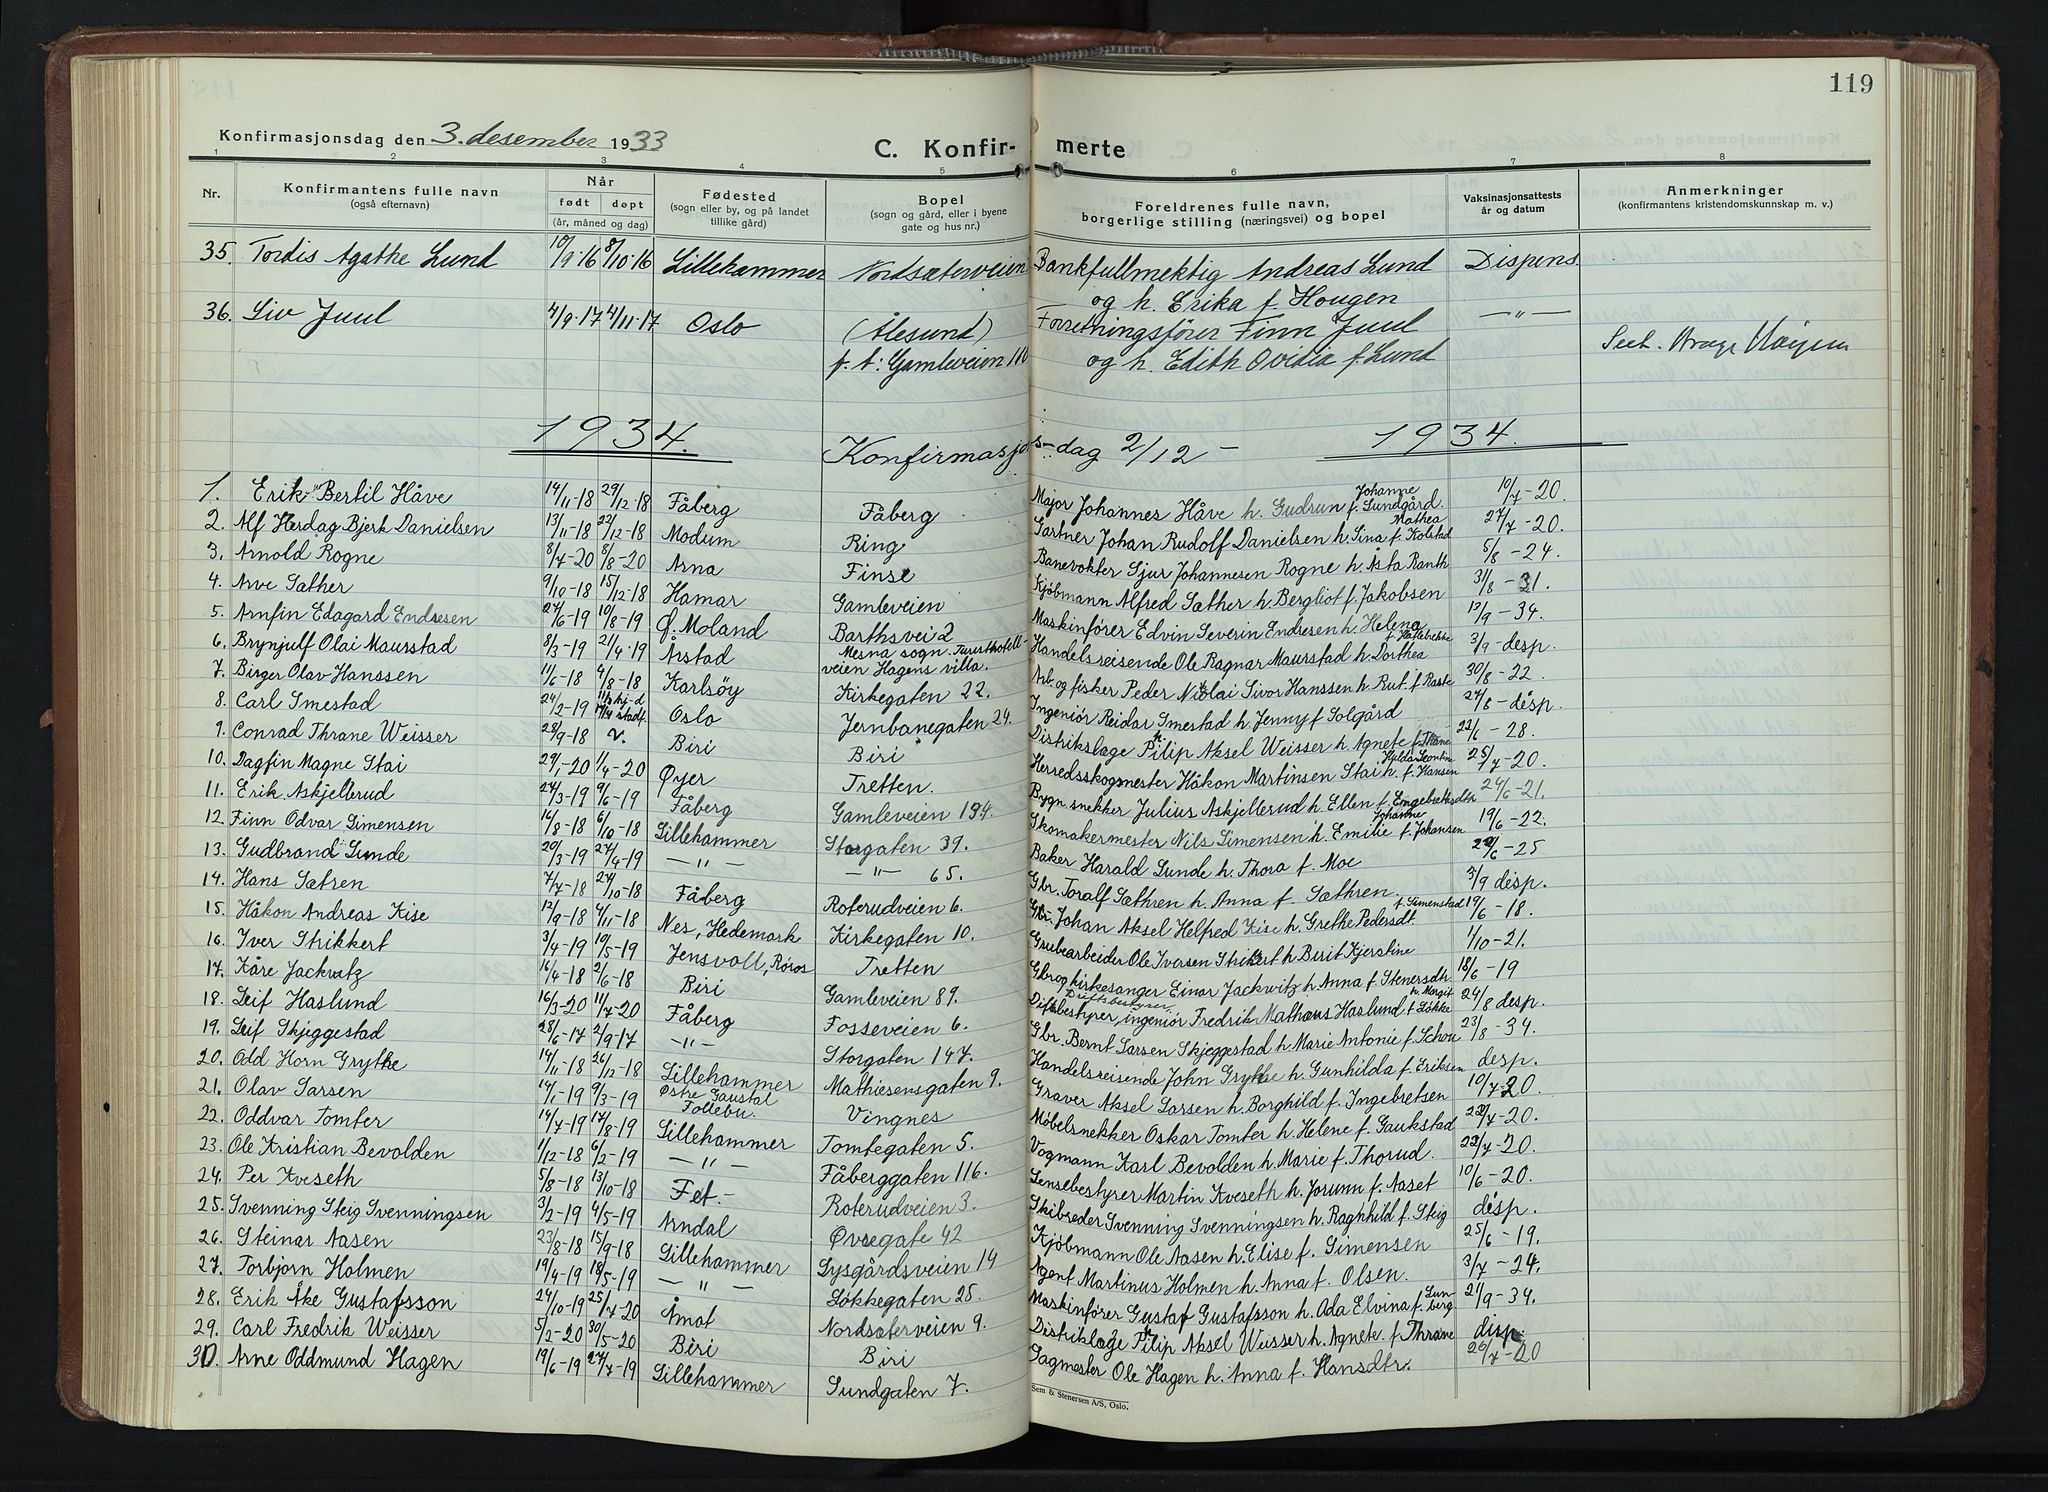 119
Konfirmasjonsdag den 3. desember 1933
C. Konfirmerte
1 2 3 4 5 6 7 8
Nr. Konfirmantens fulle navn (også efternavn) Når født døpt (år, måned og dag) Fødested (sogn eller by, og på landet tillike gård) Bopel (sogn og gård, eller i byene gate og hus nr.) Foreldrenes fulle navn, borgerlige stilling (næringsvei) og bopel Vaksinasjonsattests år og datum Anmerkninger (konfirmantens kristendomskunnskap m. v.)
35. Tordis Agathe Lund 10/9-16 8/10-16 Lillehammer Nordsæterveien Bankfullmektig Andreas Lund og h. Erika f. Hougen Dispens
36. Liv Juul 4/9-17 4/11-17 Oslo (Ålesund) p.t: Gamleveien 110 Forretningsfører Finn Juul og h. Edith Ovidia f. Lund —"—
1934. Konfirmasjons-dag 2/12 - 1934.
1. Erik Bertil Håve 14/11-18 29/12-18 Fåberg Fåberg Major Johannes Håve h. Gudrun Johanne f. Lundgård. 10/7-20.
2. Alf Herdag Bjerk Danielsen 13/11-18 22/12-18 Modum Ring Gartner Johan Rudolf Danielsen h. Lina Mathea f. Kolstad 27/7-20.
3. Arnold Rogne 8/4-20 8/8-20 Arna Finse Banevokter Sjur Johannesen Rogne h. Åsta Ranth 5/8-24.
4. Arve Sæther 9/10-18 15/12-18 Hamar Gamleveien Kjøbmann Alfred Sæther h. Bergliot f. Jakobsen 31/8-31.
5. Arnfin Edagard Endresen 27/6-19 10/8-19 Ø. Moland Barthsvei 2 Maskinfører Edvin Severin Endresen h. Helena 13/9-34.
6. Brynjulf Olai Maurstad 8/3-19 21/4-19 Årstad Mesna sogn. Turisthotellveien Hagens villa. Handelsreisende Ole Ragnar Maurstad h. Dorthea 3/9 desp.
7. Birger Olav Hanssen 11/6-18 4/8-18 Karlsöy Kirkegaten 22. Arb. og fisker Peder Nikolai Sivor Hanssen h. Rut f. Raste 30/8-22.
8. Carl Smestad 24/2-19 Oslo Jernbanegaten 24. Ingeniør Reidar Smestad h. Jenny f. Solgård 27/8-désp.
9. Conrad Thrane Weisser 28/9-18 v. Biri Biri Distrikslæge Pilip Aksel Weisser h. Agnete f. Thrane 22/6-28.
10. Dagfin Magne Stai 29/1-20 1/4-20 Øyer Tretten. Herredsskogmester Håkon Martinsen Stai h. Hilda Leontin f. Hansen 25/7-20.
11. Erik Askjellrud 27/3-19 9/6-19 Fåberg Gamleveien 194. Bygn. snekker Julius Askjellerud h. Ellen f. Engebretsdtr 24/6-21.
12. Finn Odvar Simensen 14/8-18 6/10-18 Lillehammer Storgaten 39. Skomakermester Nils Simensen h. Emilie Johanne f. Johansen 19/6-22.
13. Gudbrand Lunde 20/3-19 27/4-19 —"— —"— 65. Baker Harald Lunde h. Thora f. Moe 22/6-25
14. Hans Sætren 7/7-18 27/10-18 Fåberg Roterudveien 6. Gbr. Toralf Sæthren h. Anna f. Sæthren. 3/9 desp.
15. Håkon Andreas Kise 12/9-18 4/11-18 Nes, Hedemark Kirkegaten 10. Gbr. Johan Aksel Helfred Kise h. Grethe Pedersdt. f. Simenstad 19/6-18.
16. Iver Strikkert 3/4-19 10/5-19 Jensvoll, Røros Tretten Grubearbeider Ole Iversen Strikkert h. Birit Kjerstine 1/10-21.
17. Kåre Jackwitz 16/4-18 2/6-18 Biri Gamleveien 89. Gbr og kirkesanger Einar Jackwitz h. Anna f. Stenersdtr. 18/6-19
18. Leif Haslund 16/3-20 11/7-20 Fåberg Fosseveien 6. Driftsbestyrer, ingeniør Fredrik Mathæus Haslund h. Margit f. Løkke 24/8 desp.
19. Leif Skjeggestad 28/6-17 2/9-17 —"— Storgaten 147. Gbr. Bernt Larsen Skjeggestad h. Marie Antonie f. Schou 23/8-34.
20. Odd Horn Grytke 14/11-18 26/12-18 Lillehammer Mathiesensgaten 9. Handelsreisende John Grytke h. Gunhilda f. Eriksen desp.
21. Olav Larsen 14/1-19 9/3-19 Østre Gausdal Follebu. Vingnes Graver Aksel Larsen h. Borghild f. Ingebretsen 10/7-20
22. Oddvar Tomter 14/7-19 17/8-19 Lillehammer Tomtegaten 5. Møbelsnekker Oskar Tomter h. Helene f. Gaukstad 22/7-20.
23. Ole Kristian Bevolden 1/12-18 6/2-19 —"— Fåberggaten 116. Vogmann Karl Bevolden h. Marie f. Thorud. 22/7-20.
24. Per Kveseth 5/8-18 13/10-18 Fet.- Roterudveien 3. Lensebestyrer Martin Kveseth h. Jorunn f. Aaset 10/6-20.
25. Svenning Steig Svenningsen 3/2-19 4/5-19 Arndal Øvregate 42 Skibreder Svenning Svenningsen h. Raghhild f. Steig desp.
26. Steinar Aasen 23/8-18 15/9-18 Lillehammer Lysgårdsveien 19 Kjøbmann Ole Aasen h. Elise f. Simensen 25/6-19.
27. Torbjørn Holmen 19/4-19 18/5-19 —"— Løkkegaten 25. Agent Martinus Holmen h. Anna f. Olsen. 3/7-24.
28. Erik Åke Gustafsson 24/10-19 25/7-20 Åmot Nordsæterveien 9. Maskinfører Gustaf Gustafsson h. Ada Elvina f. Lunberg. 21/9-34.
29. Carl Fredrik Weisser 5/2-20 30/5-20 Biri Biri Distriklæge Pilip Aksel Weisser h. Agnete f. Thrane disp.
30. Arne Oddmund Hagen 19/6-19 27/7-19 Lillehammer Lundgaten 7. Dagmester Ole Hagen h. Anna f. Hansdtr. 20/7-20
Sem & Stenersen A/S, Oslo.